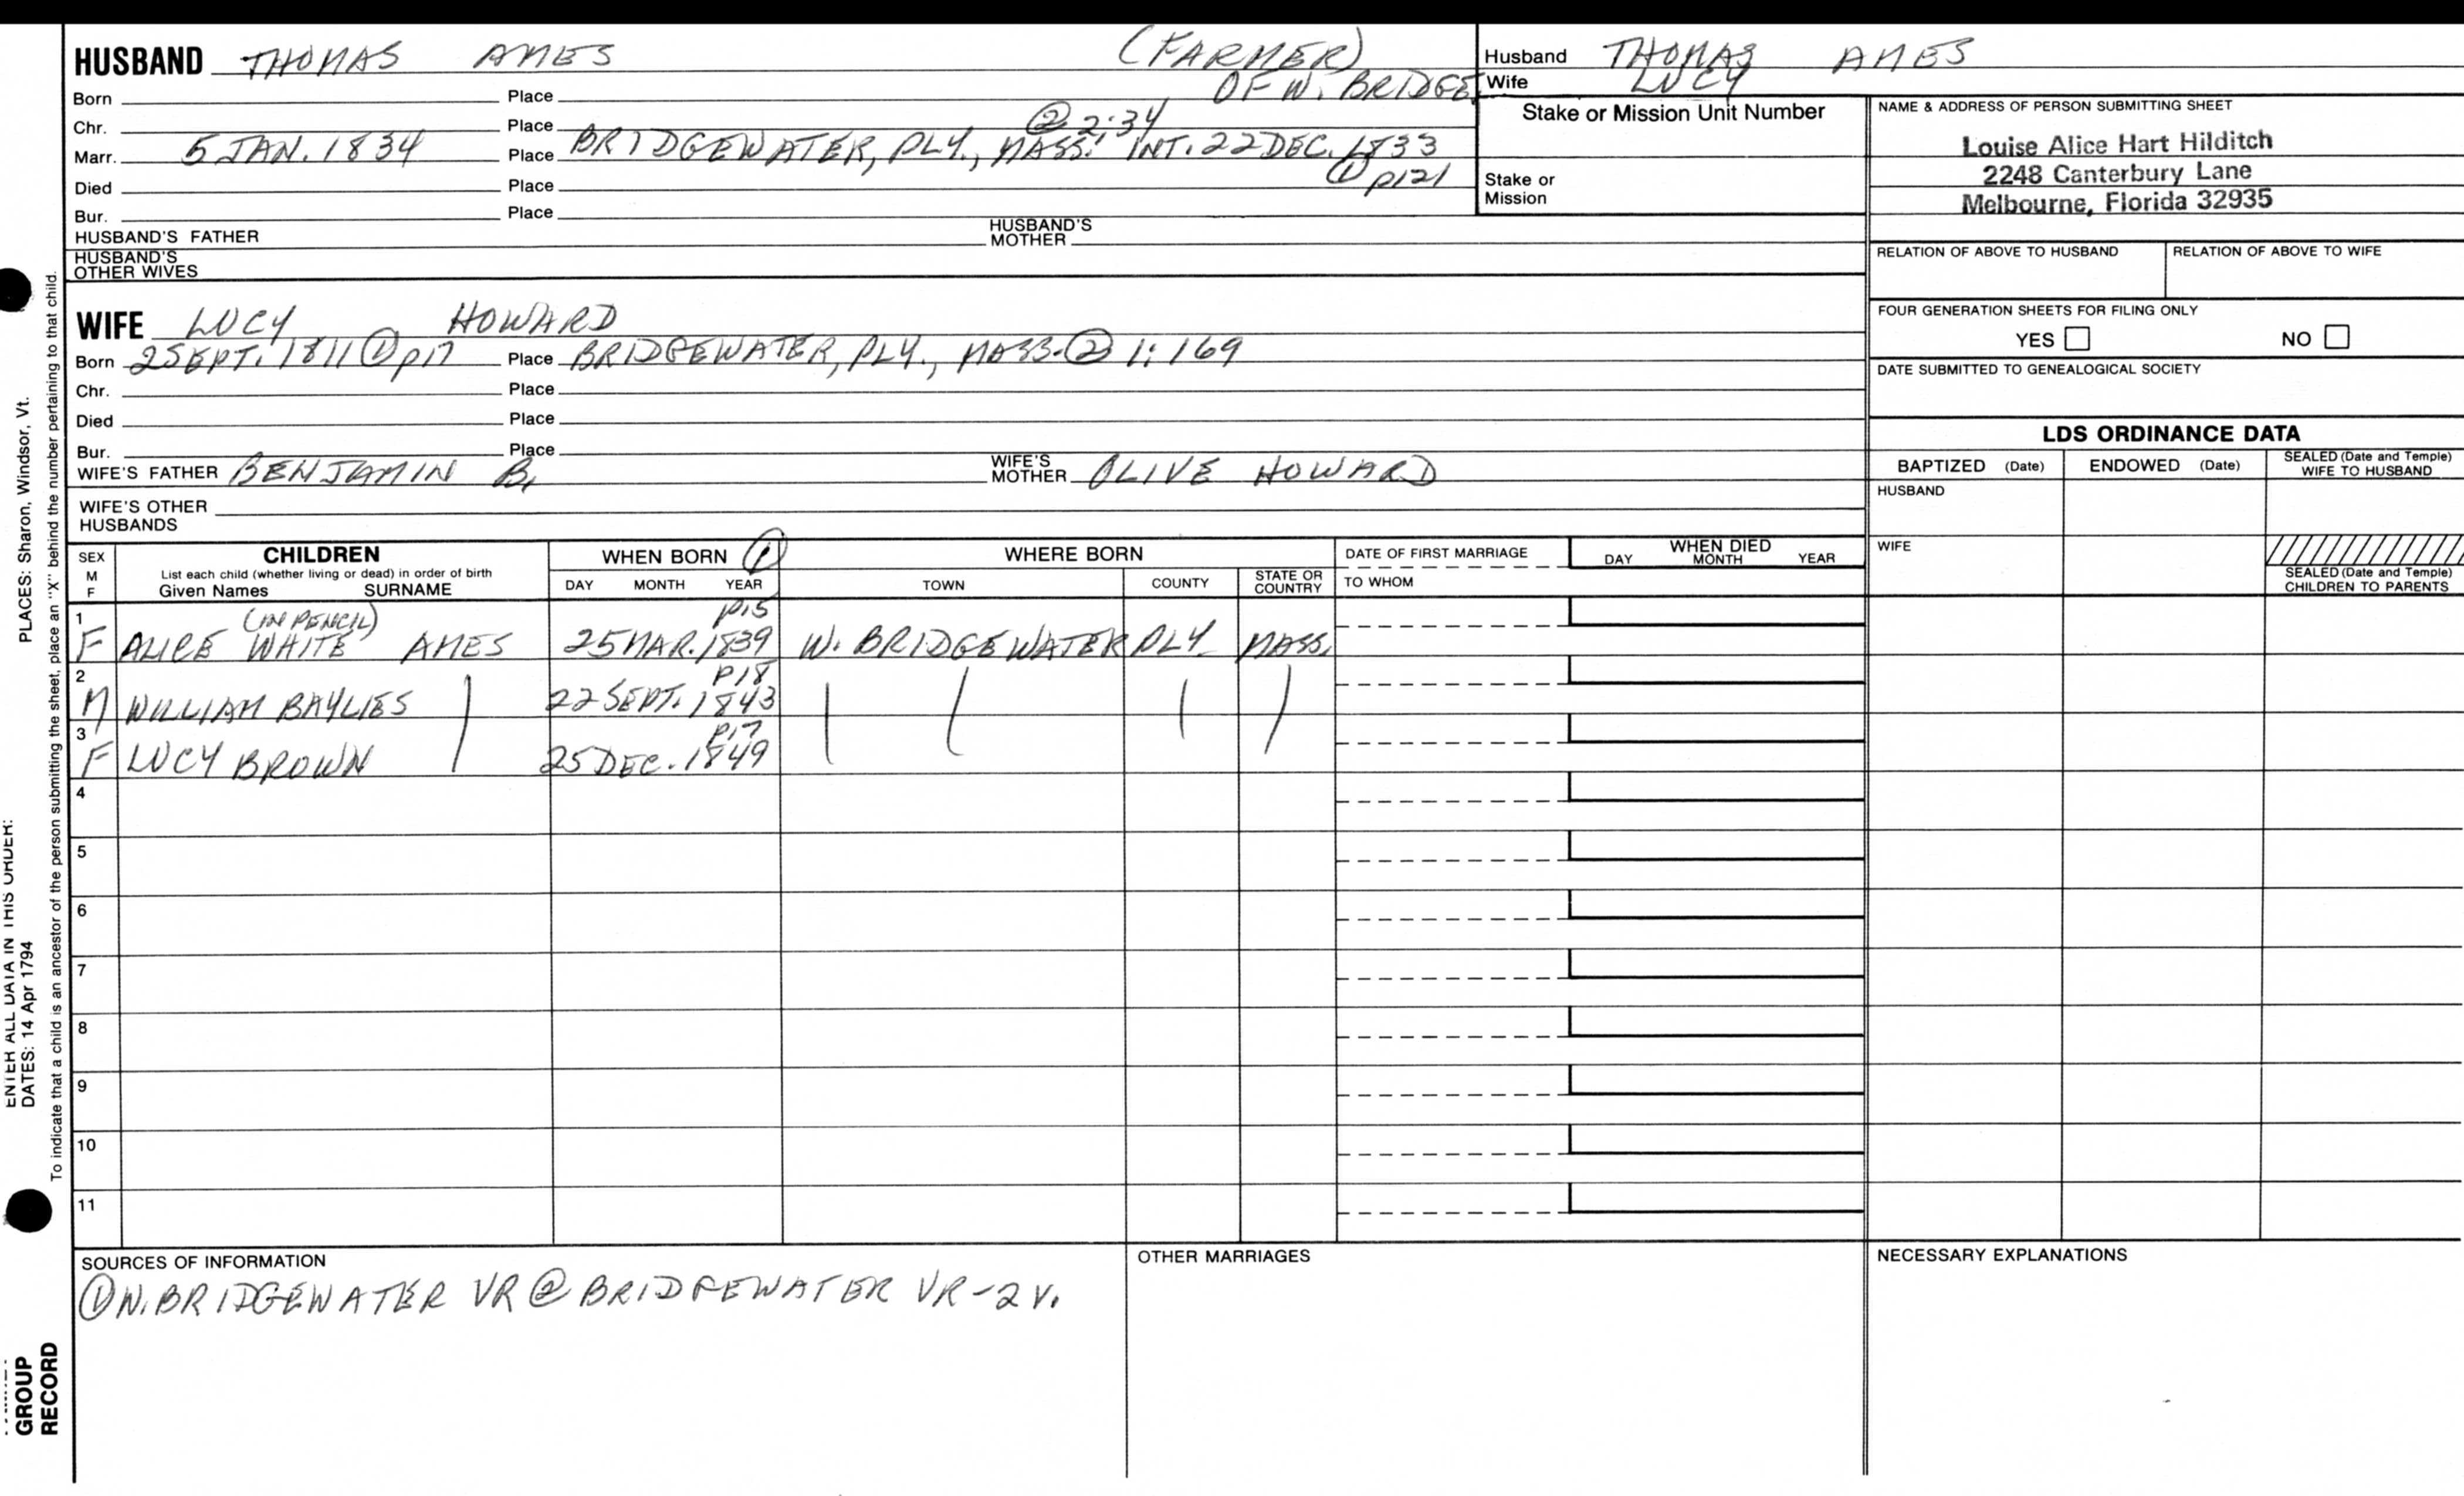 HUSBAND THOMAS AMES (FARMER)
OF W. BRIDGE.
Born Place
Chr. Place @ 2:34
Marr. 5 JAN. 1834 Place BRIDGEWATER, PLY., MASS. INT. 22 DEC. 1833
① p121
Died Place
Bur. Place
HUSBAND'S FATHER HUSBAND'S MOTHER
HUSBAND'S OTHER WIVES
Husband THOMAS AMES
Wife LUCY
Stake or Mission Unit Number
Stake or
Mission
NAME & ADDRESS OF PERSON SUBMITTING SHEET
Louise Alice Hart Hilditch
2248 Canterbury Lane
Melbourne, Florida 32935
RELATION OF ABOVE TO HUSBAND RELATION OF ABOVE TO WIFE
FOUR GENERATION SHEETS FOR FILING ONLY
YES NO
DATE SUBMITTED TO GENEALOGICAL SOCIETY
WIFE LUCY HOWARD
Born 2 SEPT. 1811 ① p17 Place BRIDGEWATER, PLY., MASS. ② 1:169
Chr. Place
Died Place
Bur. Place
WIFE'S FATHER BENJAMIN B. WIFE'S MOTHER OLIVE HOWARD
WIFE'S OTHER
HUSBANDS
LDS ORDINANCE DATA
BAPTIZED (Date) ENDOWED (Date) SEALED (Date and Temple) WIFE TO HUSBAND
HUSBAND
WIFE
SEALED (Date and Temple)
CHILDREN TO PARENTS
SEX M F
CHILDREN
List each child (whether living or dead) in order of birth
Given Names SURNAME
WHEN BORN ①
DAY MONTH YEAR
WHERE BORN
TOWN COUNTY STATE OR COUNTRY
DATE OF FIRST MARRIAGE
TO WHOM
WHEN DIED
DAY MONTH YEAR
1 (IN PENCIL) p15
F ALICE WHITE AMES 25 MAR. 1839 W. BRIDGEWATER PLY MASS.
2 p18
M WILLIAM BAYLIES 22 SEPT. 1843
3 p17
F LUCY BROWN 25 DEC. 1849
4
5
6
7
8
9
10
11
SOURCES OF INFORMATION
① W. BRIDGEWATER VR ② BRIDGEWATER VR-2V.
OTHER MARRIAGES
NECESSARY EXPLANATIONS
PLACES: Sharon, Windsor, Vt.
ENTER ALL DATA IN THIS ORDER:
DATES: 14 Apr 1794
To indicate that a child is an ancestor of the person submitting the sheet, place an "X" behind the number pertaining to that child.
GROUP
RECORD